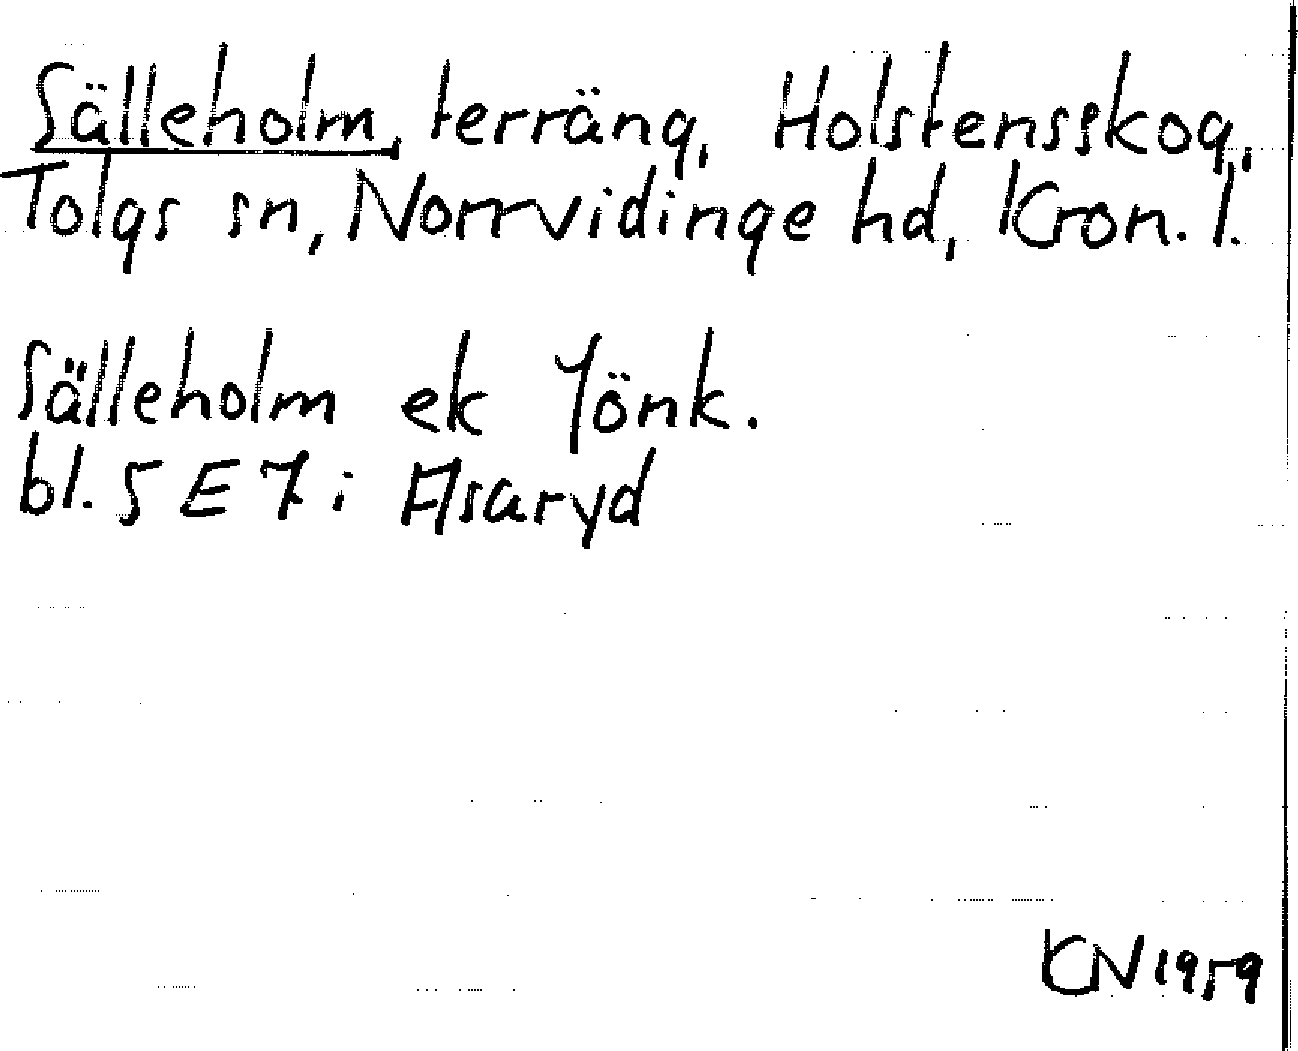 Sälleholm, terräng, Holstensskog,
Tolgs sn, Norrvidinge hd, Kron. l.
Sälleholm ek Jönk.
bl. 5 E 7 i Asaryd
KN 1959